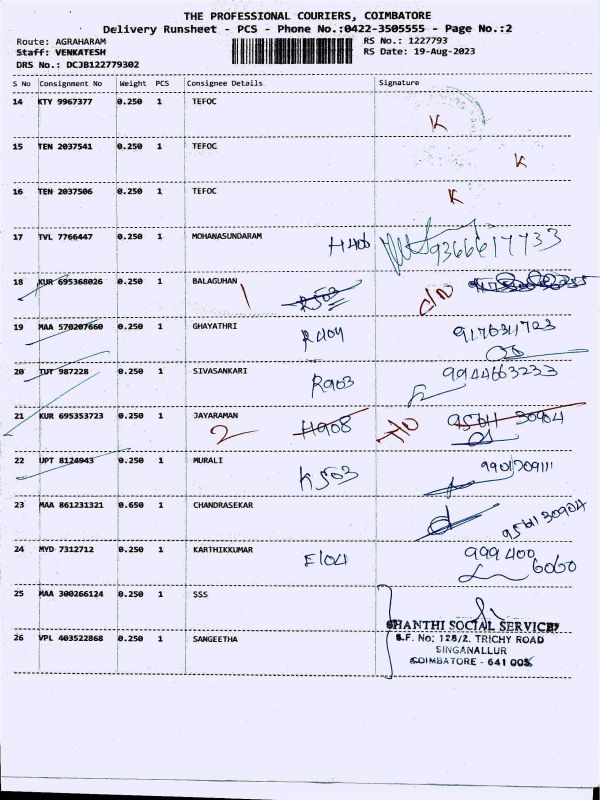 THE PROFESSIONAL COURIERS, COIMBATORE
Delivery Runsheet - PCS - Phone No.:0422-3505555 - Page No.:2
Route: AGRAHARAM RS No.: 1227793
Staff: VENKATESH RS Date: 19-Aug-2023
DRS No.: DCJB122779302
S No Consignment No Weight PCS Consignee Details Signature
14 KTY 9967377 0.250 1 TEFOC K
15 TEN 2037541 0.250 1 TEFOC K
16 TEN 2037506 0.250 1 TEFOC K
17 TVL 7766447 0.250 1 MOHANASUNDARAM H406 9366617733
18 KUR 695368026 0.250 1 BALAGUHAN 1 R503
19 MAA 570207660 0.250 1 GHAYATHRI R404 9176311723
20 TUT 987228 0.250 1 SIVASANKARI R903 9944663233
21 KUR 695353723 0.250 1 JAYARAMAN 2 H908 95611 30904
22 UPT 8124943 0.250 1 MURALI K503 9901709111
23 MAA 861231321 0.650 1 CHANDRASEKAR 95611 30904
24 MYD 7312712 0.250 1 KARTHIKKUMAR E104 999 400 6060
25 MAA 300266124 0.250 1 SSS
SHANTHI SOCIAL SERVICE
S.F. No: 128/2. TRICHY ROAD
26 VPL 403522868 0.250 1 SANGEETHA
SINGANALLUR
COIMBATORE - 641 005